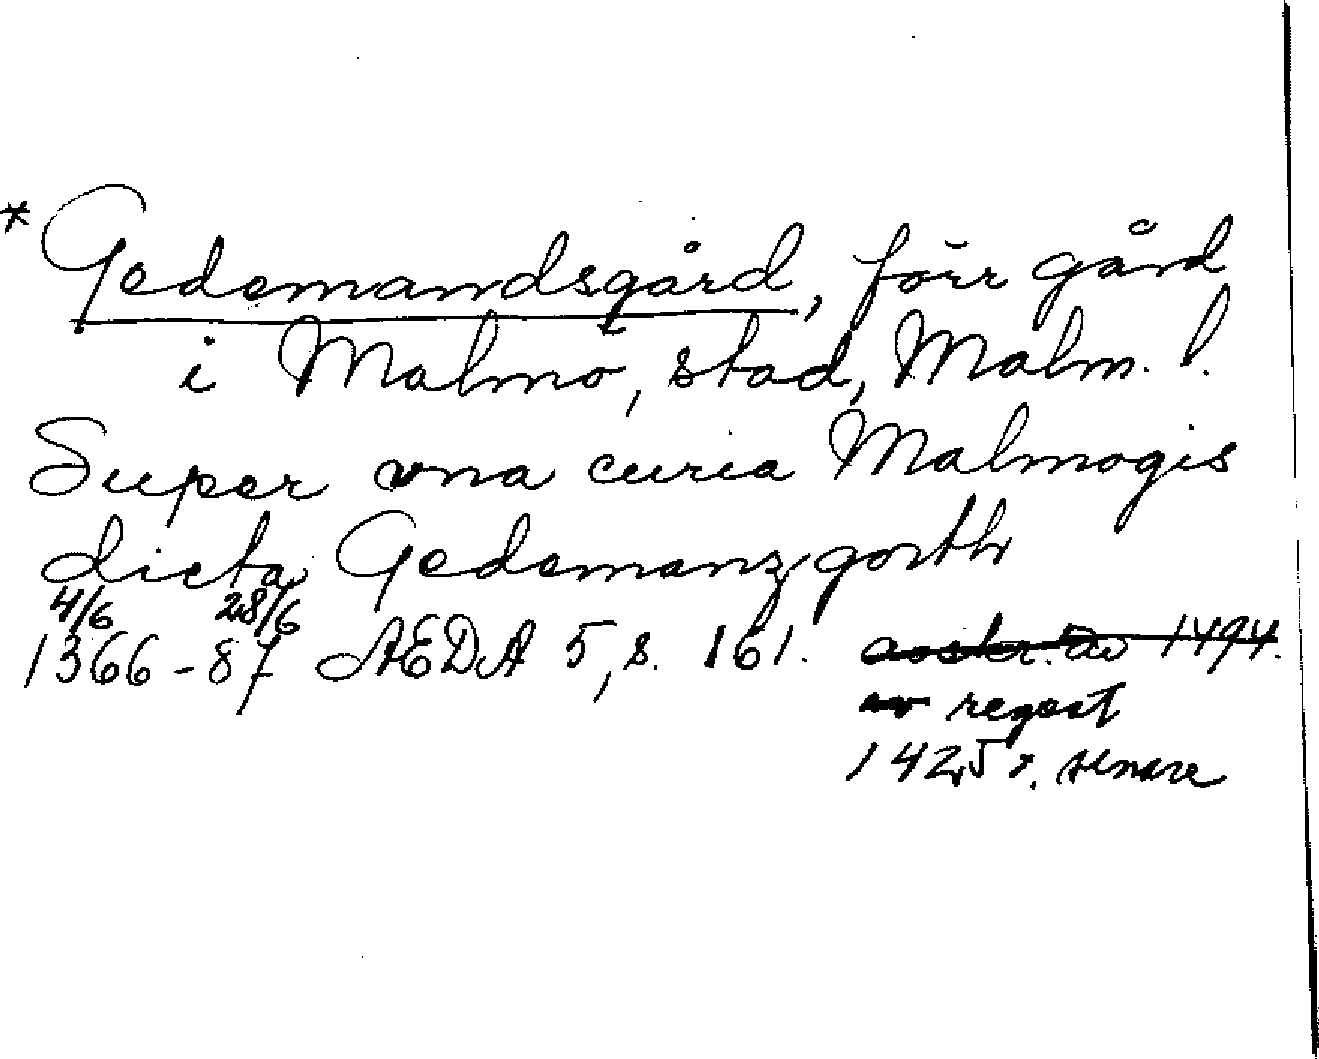 * Gedemandsgård, förr gård
i Malmö, stad, Malm. l.
Super vna curia Malmogis
dicta Gedemanzgorth
4/6 28/6
1366-87 ÆDA 5, s. 161. avskr. av 1494.
av regest
1425 o. senare